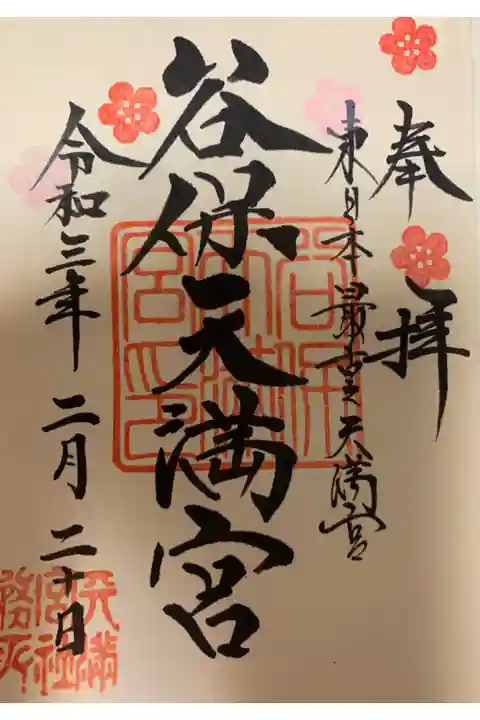 奉拝
東日本最古之天満宮
谷保天満宮
令和三年 二月 二十日
谷保天満宮印
天満宮社務所